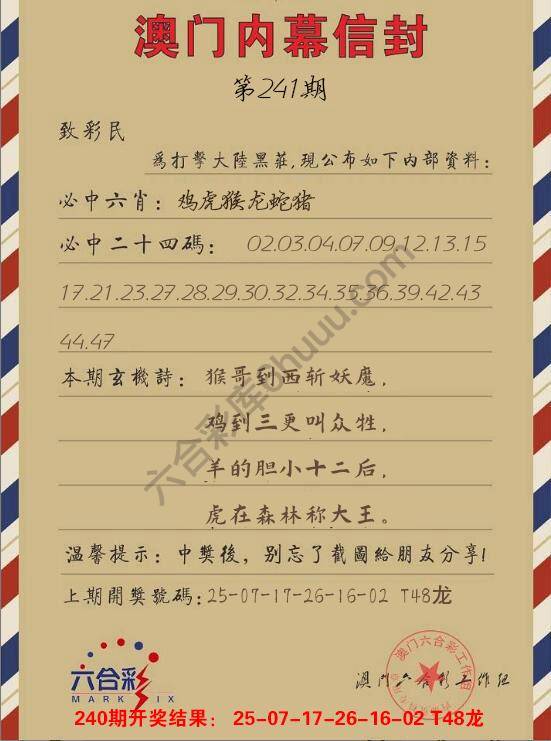 澳门内幕信封
第241期
致彩民
為打擊大陸黑莊,現公布如下内部資料:
必中六肖: 鸡虎猴龙蛇猪
必中二十四碼: 02.03.04.07.09.12.13.15
17.21.23.27.28.29.30.32.34.35.36.39.42.43
44.47
本期玄機詩: 猴哥到西斩妖魔,
鸡到三更叫众牲,
羊的胆小十二后,
虎在森林称大王。
温馨提示: 中獎後, 别忘了截圖給朋友分享!
上期開獎號碼: 25-07-17-26-16-02 T48龙
六合彩库6huuu.com
六合彩
MARK SIX
澳门六合彩工作组
澳门六合彩工作组
240期开奖结果: 25-07-17-26-16-02 T48龙